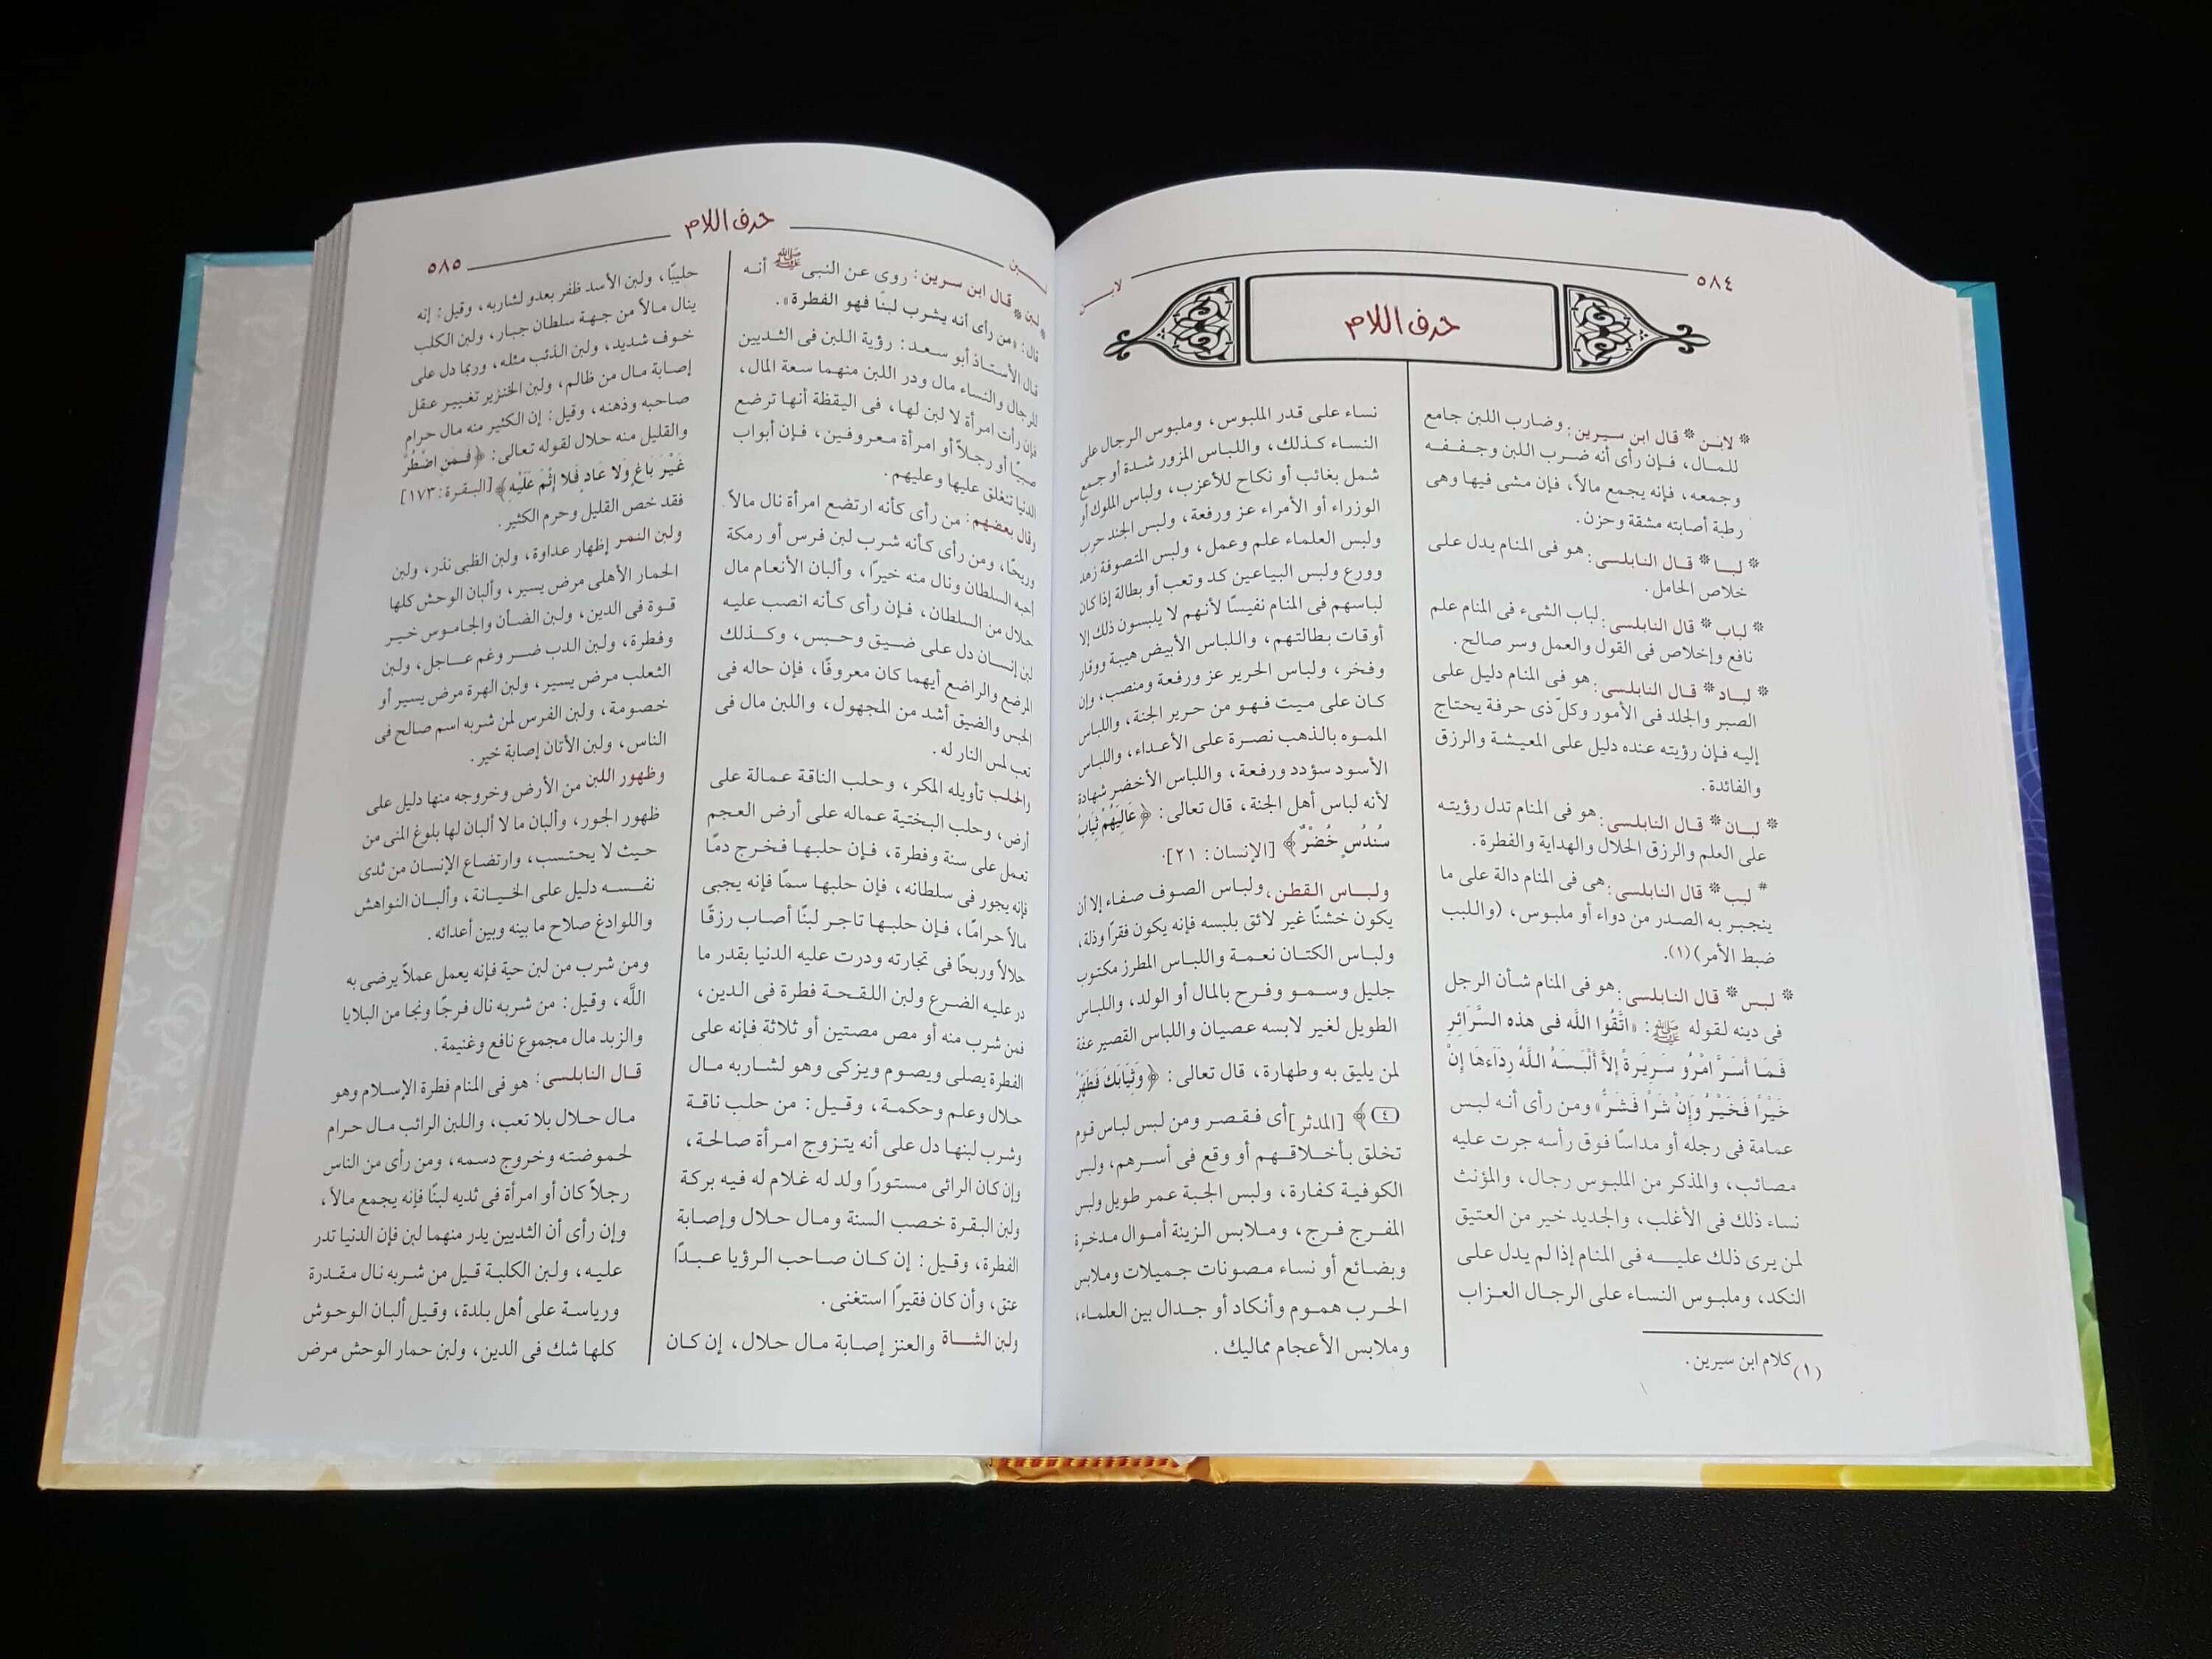 ٥٨٤
لابـــن
حرف اللام
* لابـن * قال ابن سيرين: وضارب اللبن جامع
للمـال، فـإن رأى أنه ضـرب اللبن وجـفـفـه
وجمعه، فإنه يجمع مالاً، فإن مشى فيها وهى
رطبة أصابته مشقة وحزن.
* لبـا * قـال النابلسى: هو فى المنام يدل على
خلاص الحامل.
* لباب * قال النابلسى: لباب الشىء فى المنام علم
نافع وإخلاص فى القول والعمل وسر صالح.
* لبـاد * قـال النابلسى: هو فى المنام دليل على
الصبر والجلد فى الأمور وكلّ ذى حرفة يحتاج
إليه فإن رؤيته عنده دليل على المعيشة والرزق
والفائدة.
* لبـان * قـال النابلسى: هو فى المنام تدل رؤيتـه
على العلم والرزق الحلال والهداية والفطرة.
* لبب * قال النابلسى: هى فى المنام دالة على ما
ينجبـر به الصـدر من دواء أو ملبـوس، (واللبب
ضبط الأمر)(١).
* لبـس * قال النابلسى: هو فى المنام شـأن الرجل
فى دينه لقوله ﷺ: «اتَّقُوا اللَّه فى هذه السَّرَائِرِ
فَـمَا أَسَـرَّ امْرُو سَـرِيَـرةً إلاَّ أَلْبَـسَـهُ اللَّهُ رِدَاءَهَا إنْ
خَيْرًا فَـخَيْرٌ وَإنْ شَرًا فَشَرٌ» ومن رأى أنـه لبـس
عمامة فى رجله أو مداسًا فوق رأسه جرت عليه
مصائب، والمذكر من الملبوس رجال، والمؤنث
نساء ذلك فى الأغلب، والجديد خير من العتيق
لمن يرى ذلك عليـــه فى المنام إذا لم يدل على
النكد، وملبوس النساء على الرجال العـزاب
(١) كلام ابن سيرين.
نساء على قدر الملبوس، وملبوس الرجال على
النساء كـذلك، واللباس المزور شـدة أو جـمع
شمل بغائب أو نكاح للأعزب، ولباس الملوك أو
الوزراء أو الأمراء عز ورفعة، ولبس الجند حرب
ولبس العلماء علم وعمل، ولبس المتصوفة زهد
وورع ولبس البياعين كد وتعب أو بطالة إذا كان
لباسهم فى المنام نفيسًا لأنهم لا يلبسون ذلك إلا
أوقات بطالتهم، واللباس الأبيض هيبة ووقار
وفخر، ولباس الحرير عز ورفعة ومنصب، وإن
كـان على مـيت فهـو من حـرير الجنة، واللباس
المموه بالذهب نصـرة على الأعـداء، واللباس
الأسود سؤدد ورفعة، واللباس الأخضر شهادة
لأنه لباس أهل الجنة، قال تعالى: ﴿عَالِيَهُمْ ثِيَابُ
سُندُسٍ خُضْرٌ﴾ [الإنسان: ٢١].
ولبـــاس القطن، ولباس الصـوف صفـاء إلا أن
يكون خشنًا غير لائق بلبسه فإنه يكون فقرًا وذلة،
ولبـاس الكتـان نعـمـة واللبـاس المطرز مكتوب
جليل وسـمـو وفـرح بالمال أو الولد، واللباس
الطويل لغير لابسه عصيان واللباس القصير عفة
لمن يليق به وطهارة، قال تعالى: ﴿وَثِيَابَكَ فَطَهِّرْ
(٤)﴾ [المدثر] أى فـقـصـر ومن لبس لباس قوم
تخلق بأخـلاقـهـم أو وقع فى أسـرهم، ولبس
الكوفية كفارة، ولبس الجبة عمر طويل ولبس
المفـرج فـرج، ومـلابس الزينة أمـوال مدخـرة
وبضائع أو نساء مـصونات جـميلات وملابس
الحـرب همـوم وأنكـاد أو جـدال بين العلماء،
وملابس الأعجام مماليك.
لبـــن
حرف اللام
٥٨٥
* لبن * قال ابن سرين: روى عن النبى ﷺ أنـه
قال: «من رأى أنه يشرب لبنًا فهو الفطرة».
قال الأستـاذ أبو سـعـد: رؤية اللبن فى الثديين
للرجال والنساء مال ودر اللبن منهما سعة المال،
فإن رأت امرأة لا لبن لها، فى اليقظة أنها ترضع
صبيًا أو رجـلاً أو امرأة معـروفـين، فـإن أبواب
الدنيا تنغلق عليها وعليهم.
وقال بعضهم: من رأى كأنه ارتضع امرأة نال مالاً
وربحًا، ومن رأى كأنه شرب لبن فرس أو رمكة
أحبه السلطان ونال منه خيرًا، وألبان الأنعام مال
حلال من السلطان، فـإن رأى كـأنه انصب عليـه
لبن إنسـان دل على ضـيق وحـبس، وكـذلك
المرضع والراضع أيهما كان معروفًا، فإن حاله فى
الحبس والضيق أشد من المجهول، واللبن مال فى
تعب لمس النار له.
والحلب تأويله المكر، وحلب الناقة عمـالة على
أرض، وحلب البختية عماله على أرض العجم
تعمل على سنة وفطرة، فـإن حلبـها فـخـرج دمًا
فإنه يجور فى سلطانه، فإن حلبها سمًا فإنه يجبى
مالاً حرامًا، فـإن حلبـها تاجـر لبنًا أصاب رزقًا
حلالاً وربحًا فى تجارته ودرت عليه الدنيا بقدر ما
در عليـه الضـرع ولبن اللقحـة فطرة فى الدين،
فمن شرب منه أو مص مصتين أو ثلاثة فإنه على
الفطرة يصلى ويصوم ويزكى وهو لشاربه مـال
حلال وعلم وحكمة، وقيل: من حلب ناقـة
وشرب لبنها دل على أنه يتزوج امرأة صالحـة،
وإن كان الرائى مستورًا ولد له غلام له فيه بركة
ولبن البقرة خـصب السنة ومـال حـلال وإصابة
الفطرة، وقيل: إن كـان صـاحب الرؤيا عـبـدًا
عتق، وأن كان فقيرًا استغنى.
ولبن الشـاة والعنز إصابة مـال حلال، إن كـان
حليبًا، ولبن الأسد ظفر بعدو لشاربه، وقيل: إنه
ينال مـالاً من جـهـة سلطان جبـار، ولبن الكلب
خوف شديد، ولبن الذئب مثله، وربما دل على
إصابة مال من ظالم، ولبن الخنزير تغيير عقل
صاحبه وذهنه، وقيل: إن الكثير منه مال حرام
والقليل منه حلال لقوله تعالى: ﴿فَـمَنِ اضْطُرَّ
غَيْرَ بَاغٍ وَلا عَادٍ فَلا إِثْمَ عَلَيْهِ﴾ [البقرة: ١٧٣]
فقد خص القليل وحرم الكثير.
ولبن النمر إظهار عداوة، ولبن الظبى نذر، ولبن
الحمار الأهلى مرض يسير، وألبان الوحش كلها
قـوة فى الدين، ولبن الضـأن والجاموس خـيـر
وفطرة، ولبن الدب ضـر وغم عـاجل، ولبن
الثعلب مرض يسير، ولبن الهرة مرض يسير أو
خصومة، ولبن الفرس لمن شربه اسم صالح فى
الناس، ولبن الأتان إصابة خير.
وظهور اللبن من الأرض وخروجه منها دليل على
ظهور الجور، وألبان ما لا ألبان لها بلوغ المنى من
حيث لا يحتـسب، وارتضاع الإنسان من ثدى
نفـسـه دليل على الخـيـانة، وألبـان النواهش
واللوادغ صلاح ما بينه وبين أعدائه.
ومن شرب من لبن حية فإنه يعمل عملاً يرضى به
اللَّه، وقيل: من شربه نال فرجًا ونجا من البلايا
والزبد مال مجموع نافع وغنيمة.
قـال النابلسى: هو فى المنام فطرة الإسـلام وهو
مـال حـلال بلا تعب، واللبن الرائب مـال حرام
لحموضته وخروج دسمه، ومن رأى من الناس
رجلاً كان أو امرأة فى ثديه لبنًا فإنه يجمع مالاً،
وإن رأى أن الثديين يدر منهما لبن فإن الدنيا تدر
عليـه، ولبن الكلبـة قيل من شربه نال مـقـدرة
ورياسة على أهل بلدة، وقيل ألبان الوحـوش
كلها شك فى الدين، ولبن حمار الوحش مرض